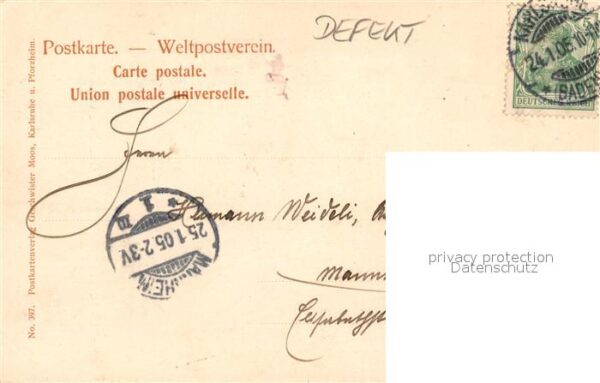 DEFEKT
Postkarte. — Weltpostverein.
Carte postale.
Union postale universelle.
24.1.05.10
(BADEN
DEUTSCHES REICH
Herrn
Hermann Weideli,
Mann
MANNHEIM
25.1.05.2-3V
* 1 m
privacy protection
Datenschutz
No. 397. Postkartenverlag Geschwister Moos, Karlsruhe u. Pforzheim.